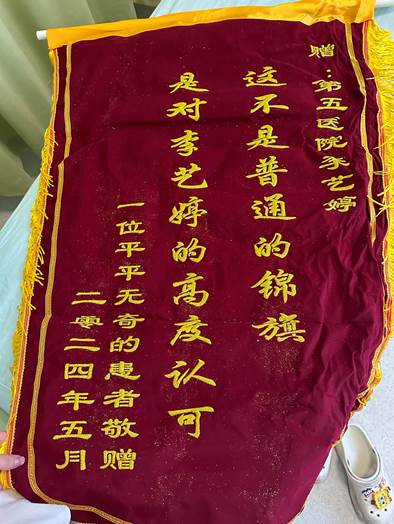 赠：第五医院李艺婷
这不是普通的锦旗
是对李艺婷的高度认可
一位平平无奇的患者敬赠
二零二四年五月